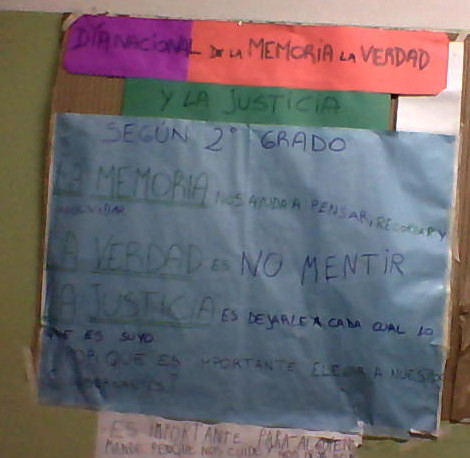 DÍA NACIONAL DE LA MEMORIA LA VERDAD
Y LA JUSTICIA
SEGÚN 2° GRADO
LA MEMORIA NOS AYUDA A PENSAR, RECORDAR Y
NO OLVIDAR
LA VERDAD ES NO MENTIR
LA JUSTICIA ES DEJARLE A CADA CUAL LO
QUE ES SUYO
¿POR QUE ES IMPORTANTE ELEGIR A NUESTROS
GOBERNANTES?
ES IMPORTANTE PARA
MANDE PORQUE NOS CUIDE